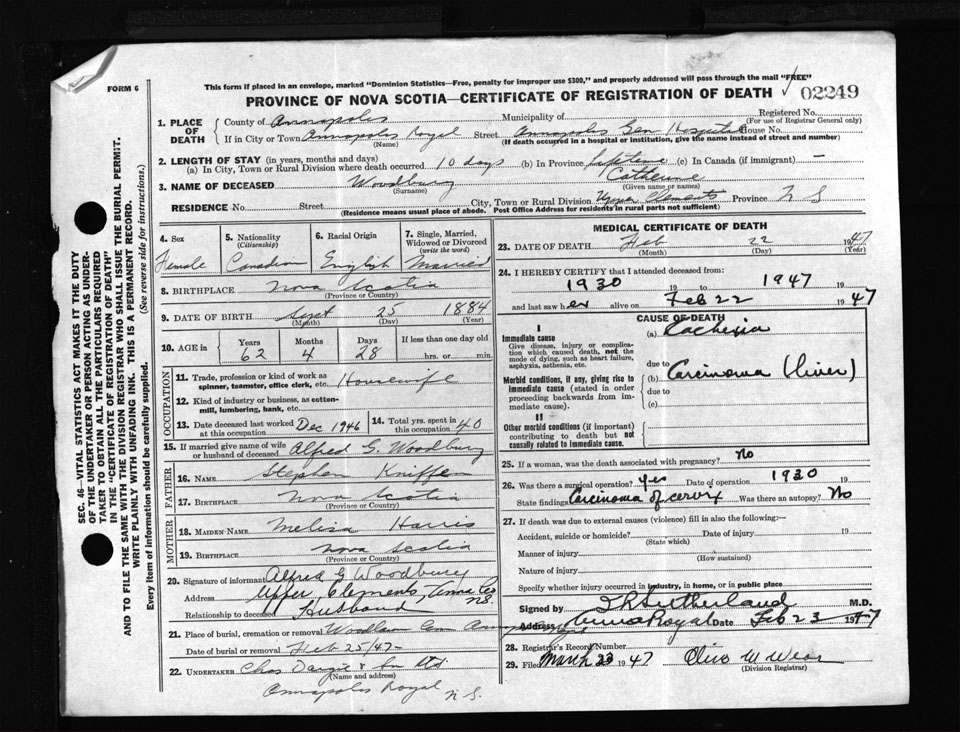 FORM 6
This form if placed in an envelope, marked "Dominion Statistics—Free, penalty for improper use $300," and properly addressed will pass through the mail "FREE"
PROVINCE OF NOVA SCOTIA—CERTIFICATE OF REGISTRATION OF DEATH 02249
1. PLACE OF DEATH
County of Annapolis Municipality of Registered No.
(For use of Registrar General only)
If in City or Town Annapolis Royal Street Annapolis Gen Hospital House No.
(Name) (If death occurred in a hospital or institution, give the name instead of street and number)
2. LENGTH OF STAY (in years, months and days)
(a) In City, Town or Rural Division where death occurred 10 days (b) In Province lifetime (c) In Canada (if immigrant) —
3. NAME OF DECEASED Woodbury Catherine
(Surname) (Given name or names)
RESIDENCE No. Street City, Town or Rural Division Upper Clements Province N S
(Residence means usual place of abode. Post Office Address for residents in rural parts not sufficient)
SEC. 46—VITAL STATISTICS ACT MAKES IT THE DUTY
OF THE UNDERTAKER OR PERSON ACTING AS UNDER-
TAKER TO OBTAIN ALL THE PARTICULARS REQUIRED
IN THE "CERTIFICATE OF REGISTRATION OF DEATH"
AND TO FILE THE SAME WITH THE DIVISION REGISTRAR WHO SHALL ISSUE THE BURIAL PERMIT.
WRITE PLAINLY WITH UNFADING INK. THIS IS A PERMANENT RECORD.
Every item of information should be carefully supplied. (See reverse side for instructions.)
4. Sex
Female
5. Nationality
(Citizenship)
Canadian
6. Racial Origin
English
7. Single, Married,
Widowed or Divorced
(write the word)
Married
8. BIRTHPLACE Nova Scotia
(Province or Country)
9. DATE OF BIRTH Sept 25 1884
(Month) (Day) (Year)
10. AGE in
Years Months Days If less than one day old
62 4 28 hrs. or min.
OCCUPATION
11. Trade, profession or kind of work as
spinner, teamster, office clerk, etc. Housewife
12. Kind of industry or business, as cotton-
mill, lumbering, bank, etc.
13. Date deceased last worked
at this occupation Dec 1946
14. Total yrs. spent in
this occupation 40
15. If married give name of wife
or husband of deceased Alfred G. Woodbury
FATHER
16. NAME Stephen Kniffen
17. BIRTHPLACE Nova Scotia
(Province or Country)
MOTHER
18. MAIDEN NAME Melisa Harris
19. BIRTHPLACE Nova Scotia
(Province or Country)
20. Signature of informant Alfred G Woodbury
Address Upper Clements, Anna Co
N.S.
Relationship to deceased Husband
21. Place of burial, cremation or removal Woodlawn Cem
Date of burial or removal Feb 25/47—
22. UNDERTAKER Chas Dargie & Son Ltd
(Name and address)
Annapolis Royal N S.
MEDICAL CERTIFICATE OF DEATH
23. DATE OF DEATH Feb 22 1947
(Month) (Day) (Year)
24. I HEREBY CERTIFY that I attended deceased from:
1930 19 to 1947 19
and last saw her alive on Feb 22 1947
CAUSE OF DEATH
I
Immediate cause
Give disease, injury or complica-
tion which caused death, not the
mode of dying, such as heart failure,
asphyxia, asthenia, etc.
(a) Cachexia
due to
Morbid conditions, if any, giving rise to
immediate cause (stated in order
proceeding backwards from im-
mediate cause).
(b) Carcinoma (liver)
due to
(c)
II
Other morbid conditions (if important)
contributing to death but not
causally related to immediate cause.
25. If a woman, was the death associated with pregnancy? No
26. Was there a surgical operation? Yes Date of operation 1930
State findings Carcinoma of cervix Was there an autopsy? No
27. If death was due to external causes (violence) fill in also the following:—
Accident, suicide or homicide? Date of injury 19
(State which)
Manner of injury
(How sustained)
Nature of injury
Specify whether injury occurred in industry, in home, or in public place
Signed by Sutherland M.D.
Address Anna Royal Date Feb 23 1947
28. Registrar's Record Number
29. Filed March 23 1947
(Division Registrar)